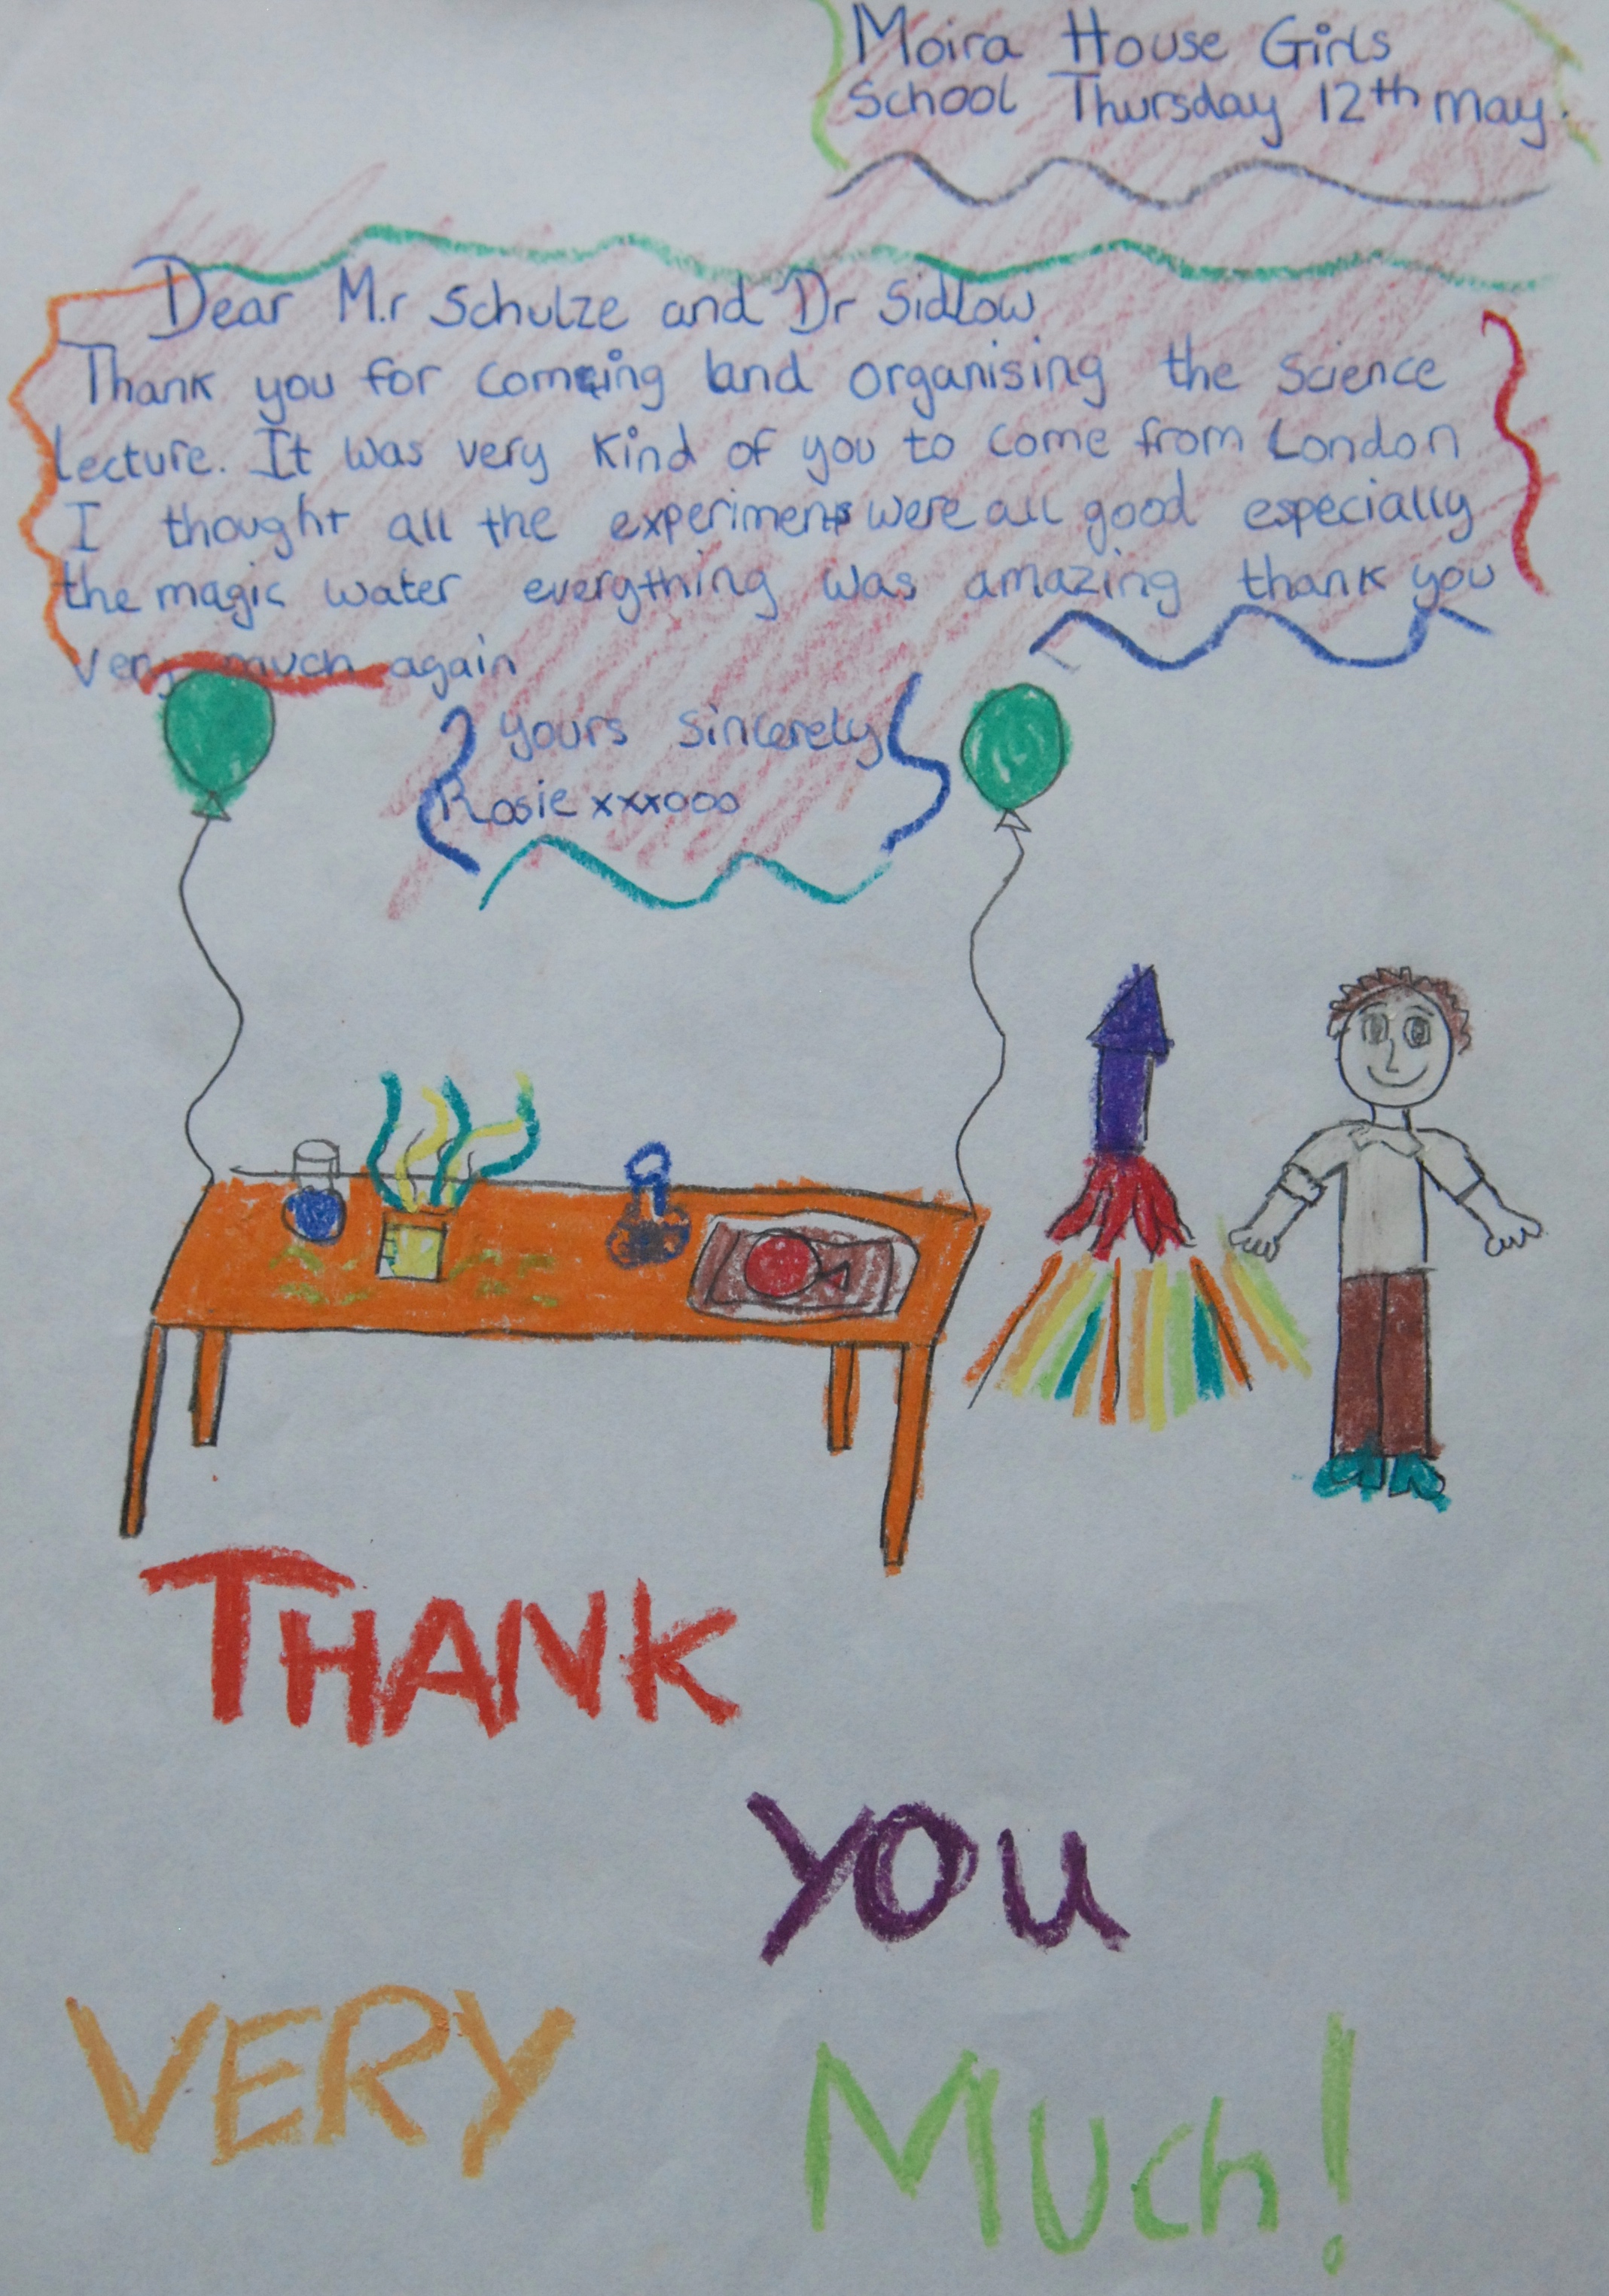 Moira House Girls
School Thursday 12th May.
Dear M.r Schulze and Dr Sidlow
Thank you for coming and organising the science
lecture. It was very kind of you to come from London
I thought all the experiments were all good especially
the magic water everything was amazing thank you
very much again
yours sincerely
Rosie xxxooo
THANK
YOU
VERY
MUch!